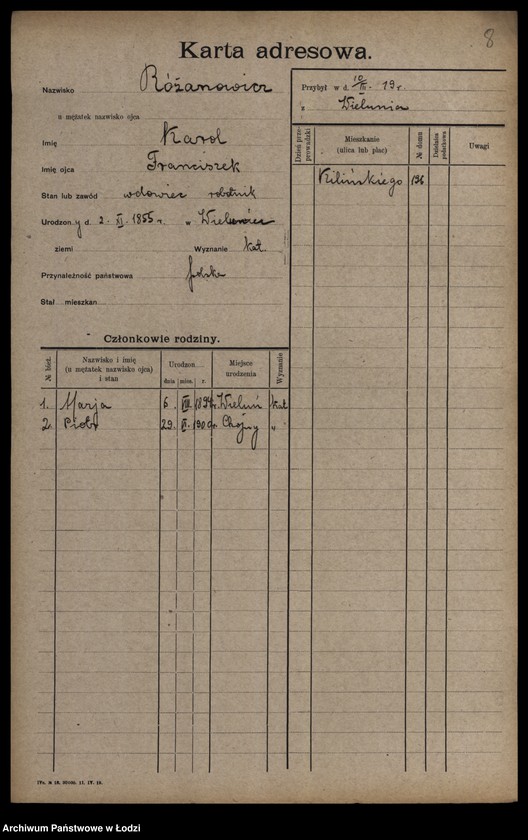 8
Karta adresowa.
Nazwisko Różanowicz
u mężatek nazwisko ojca
Imię Karol
Imię ojca Franciszek
Stan lub zawód wdowiec robotnik
Urodzony d. 2. XI. 1855 r. w
ziemi Wyznanie kat.
Przynależność państwowa polska
Stał. mieszkan.
Przybył w d. 10/III. 19 r.
z Wielunia
Dzień przeprowadzki
Mieszkanie (ulica lub plac)
№ domu
Dzielnica podatkowa
Uwagi
Kilińskiego 136
Członkowie rodziny.
№ bież.
Nazwisko i imię
(u mężatek nazwisko ojca)
i stan
Urodzon.
dnia mies. r.
Miejsce urodzenia
Wyznanie
1. Marja 6. VIII. r. Wieluń kat
2. Piotr 29. r. Chojny "
Archiwum Państwowe w Łodzi